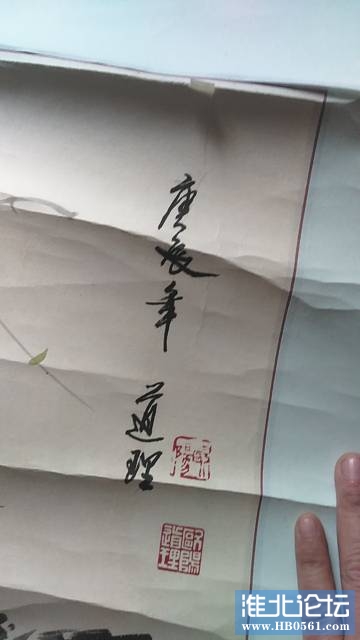 庚辰年
道理
歐陽道理
淮北论坛
www.HB0561.com